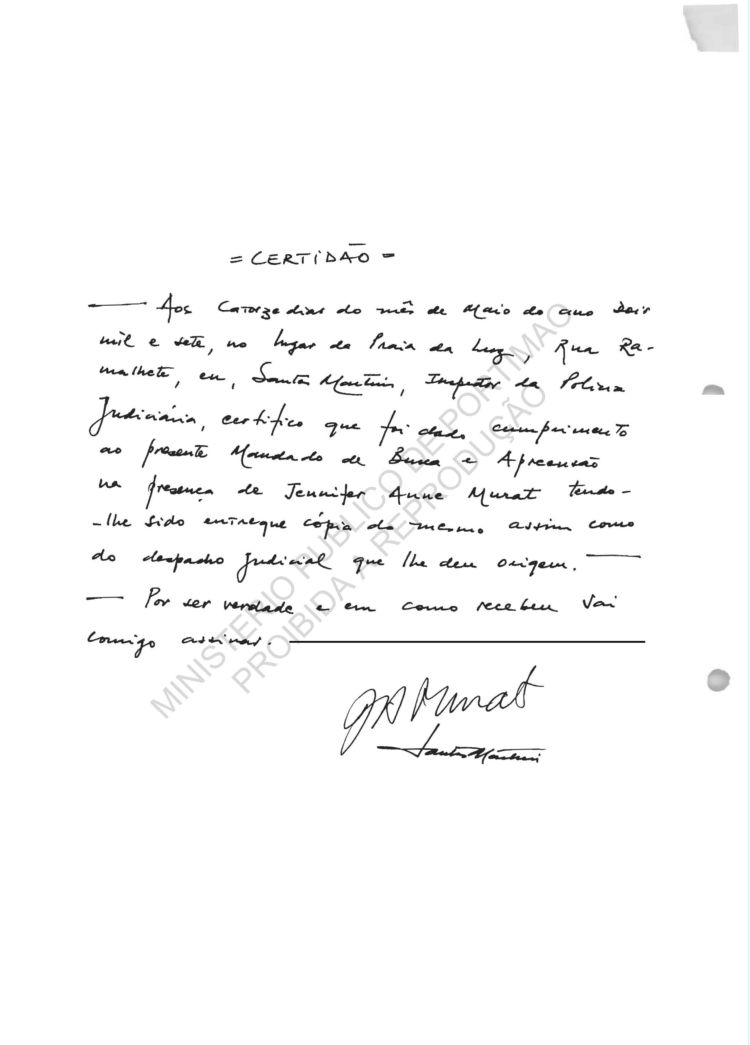 = CERTIDÃO =
Aos catorze dias do mês de Maio do ano dois
mil e sete, no lugar da Praia da Luz, Rua Ra-
malhete, eu, Santos Martins, Inspector da Polícia
Judiciária, certifico que foi dado cumprimento
ao presente Mandado de Busca e Apreensão
na presença de Jennifer Anne Murat tendo-
-lhe sido entregue cópia do mesmo assim como
do despacho Judicial que lhe deu origem.
Por ser verdade e em como recebeu vai
comigo assinar.
JA Murat
Santos Martins
MINISTERIO PUBLICO DE PORTIMAO
PROIBIDA A REPRODUÇÃO